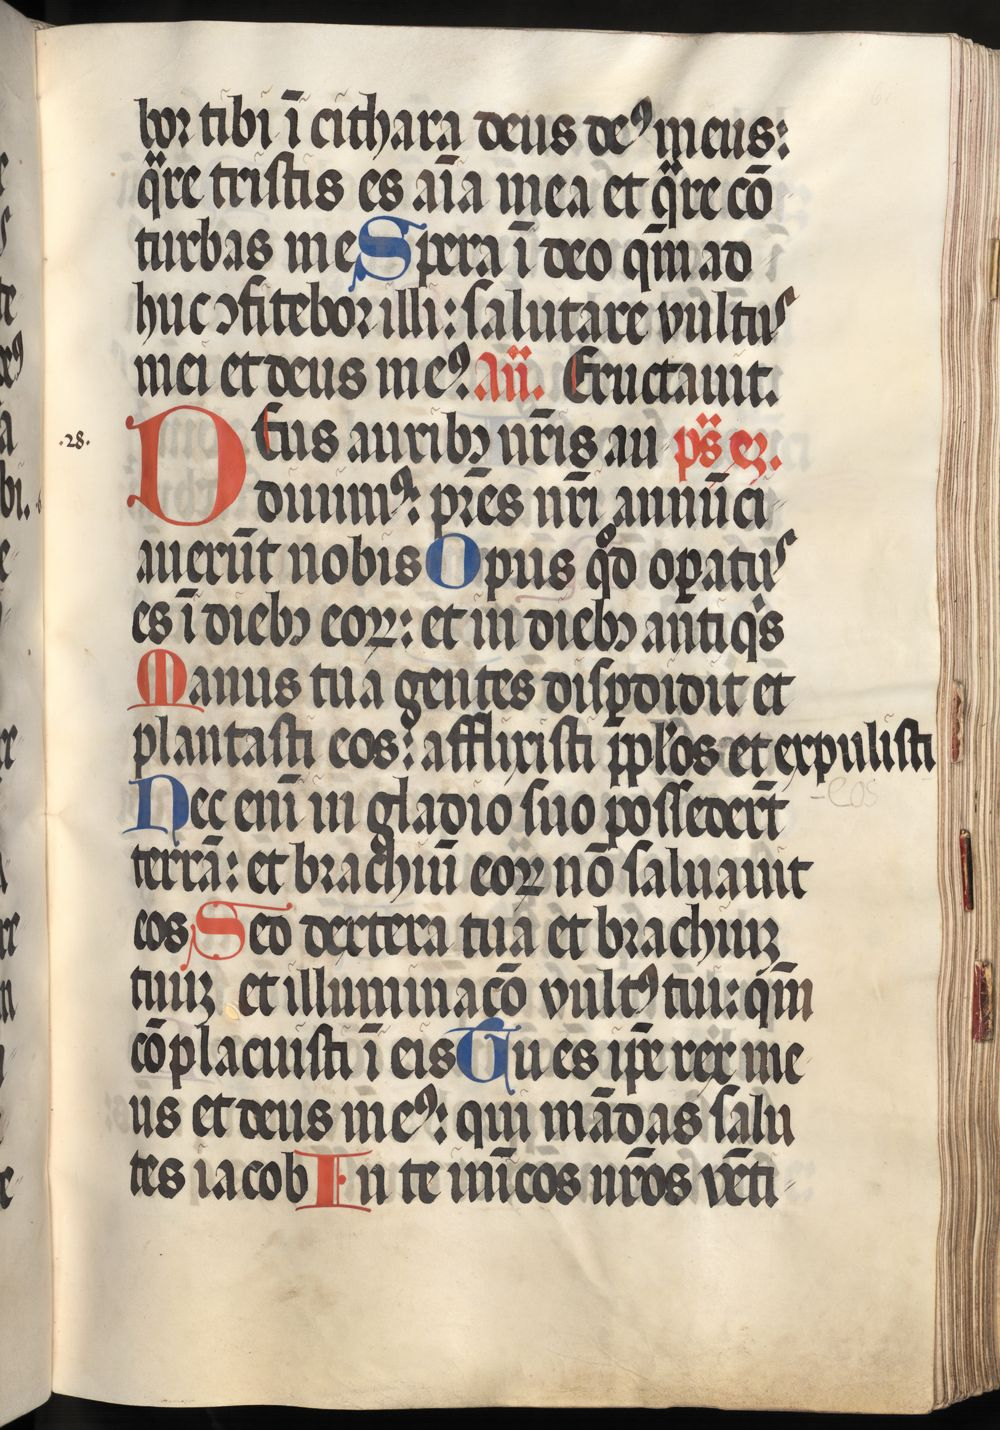 bor tibi ī cithara deus deꝰ meus:
q̈re tristis es aīa mea et q̈re cō
turbas me Spera ī deo qm̄ ad
huc ɔfitebor illi: salutare vultus
mei et deus meꝰ. Añ. Eructauit.
.28. Deus auribꝫ nr̄is au ps̈ eꝫ.
diuimꝰ: pr̄es nr̄i annūci
auerūt nobis Opus qͦd opatus
es ī diebꝫ eoꝝ: et in diebꝫ antiqis
Manus tua gentes disꝑdidit et
plantasti eos: afflixisti pp̄los et expulisti
- eos
Nec enī in gladio suo possedert̄
terrā: et brachiū eoꝝ nō saluauit
eos Sed dextera tua et brachiuꝫ
tuuꝫ et illuminacō vultꝰ tui: qm̄
cōplacuisti ī eis Tu es ip̄e rex me
us et deus meꝰ: qui mādas salu
tes iacob In te inīcos nr̄os vēti